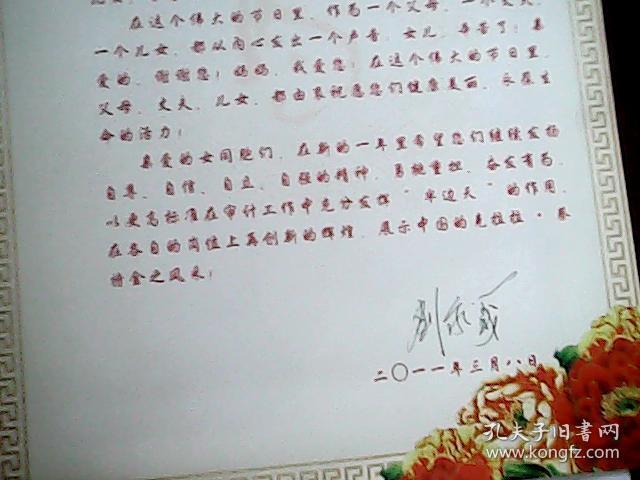 在这个伟大的节日里，作为一个父母，一个丈夫，
一个儿女，都从内心发出一个声音，女儿，辛苦了；亲
爱的，谢谢您；妈妈，我爱您；在这个伟大的节日里，
父母、丈夫、儿女，都由衷祝愿您们健康美丽，永葆生
命的活力！
亲爱的女同胞们，在新的一年里希望您们继续发扬
自尊、自信、自立、自强的精神，勇挑重担，奋发有为，
以更高标准在审计工作中充分发挥“半边天”的作用，
在各自的岗位上再创新的辉煌，展示中国的克拉拉·蔡
特金之风采！
二〇一一年三月八日
孔夫子旧書网
www.kongfz.com